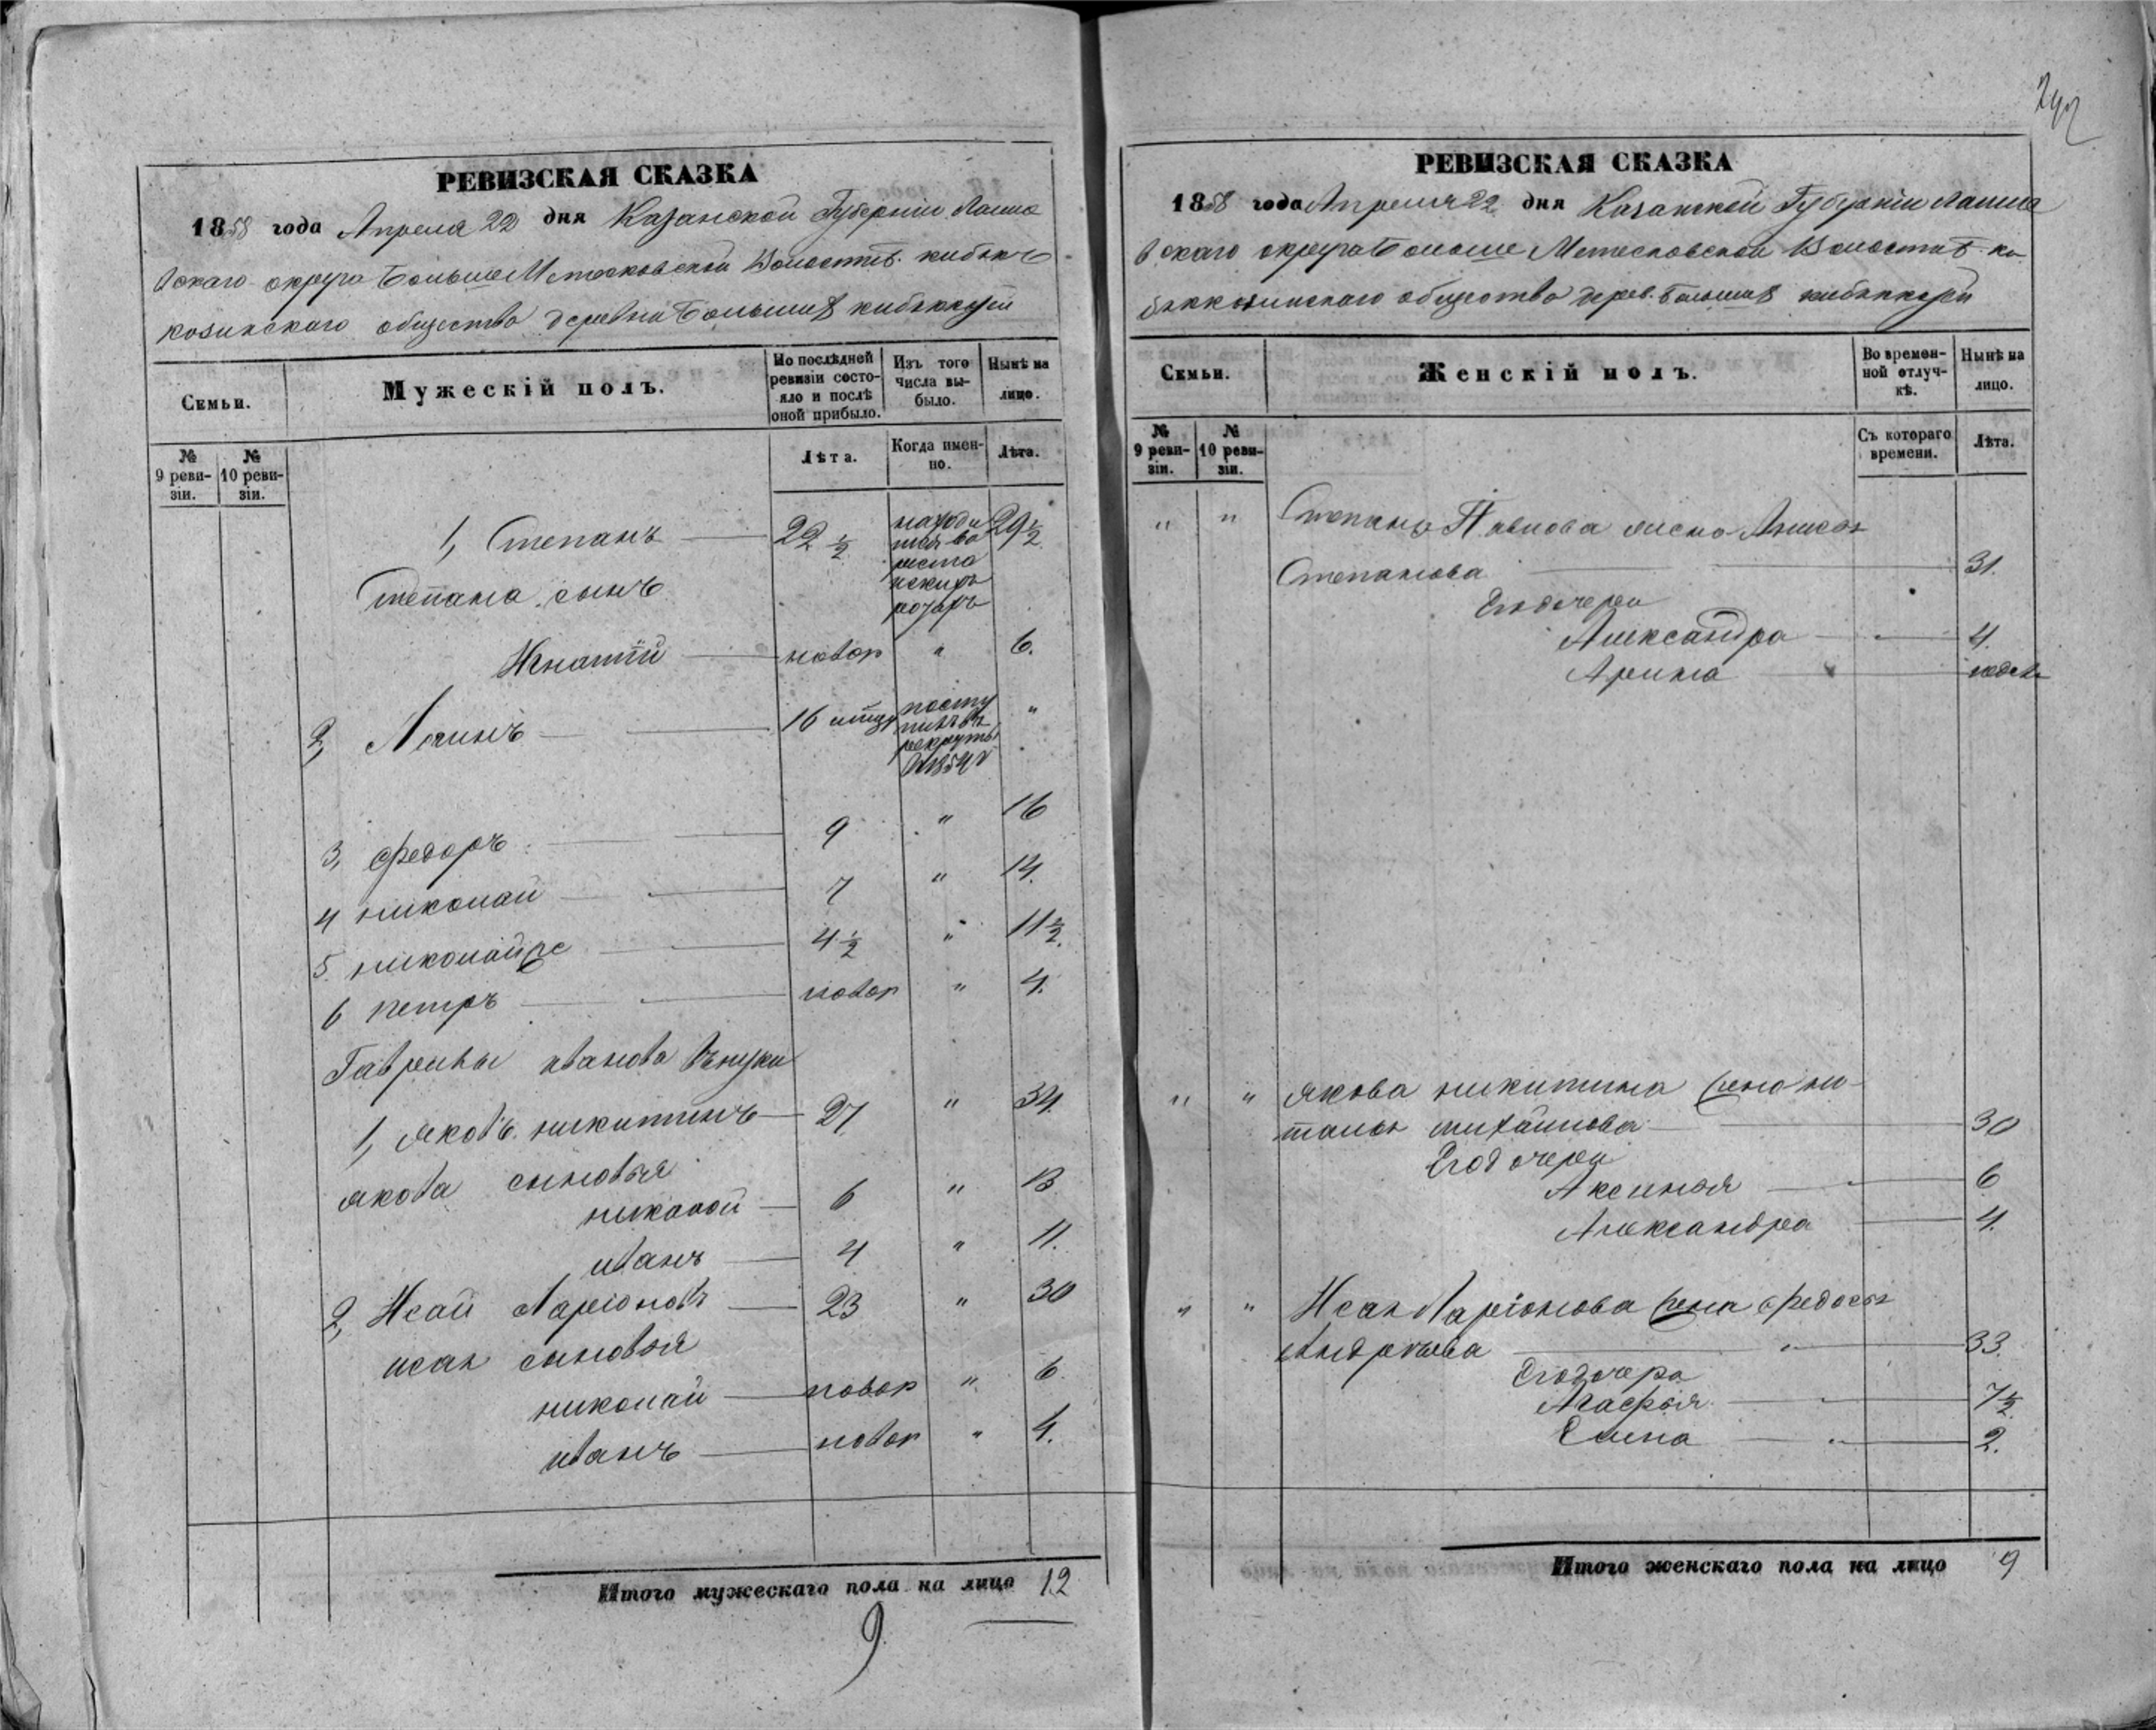 РЕВИЗСКАЯ СКАЗКА
1858 года Апреля 22 дня Казанской Губерніи Лаише
вскаго округа Больше Метесковской Волости кибякъ
козинскаго общества деревни Большихъ кибяккози
Семьи.
Мужескій полъ.
По послѣдней ревизіи состояло и послѣ оной прибыло.
Изъ того числа выбыло.
Нынѣ на лицо.
№ 9 ревизіи.
№ 10 ревизіи.
Лѣта.
Когда именно.
Лѣта.
1, Степанъ 22 1/2 находи 29 1/2
Степана сынъ
Игнатій новор " 6.
2, Логинъ 16 посту "
пилъ въ
рекруты
в 1854 г
3, Федоръ 9 " 16
4 николай 7 " 14.
5. николай же 4 1/2 " 11 1/2.
6 петръ новор " 4.
Гаврилы иванова внуки
1, яковъ никитинъ 27 " 34.
якова сыновья
николай 6 " 13
иванъ 4 " 11.
2, Исай Ларіоновъ 23 " 30
исая сыновья
николай новор " 6.
иванъ новор " 4.
Итого мужескаго пола на лицо 12
9.
РЕВИЗСКАЯ СКАЗКА
1858 года Апреля 22 дня Казанской Губерніи Лаише
вскаго округа Больше Метесковской Волости ки
бяккозинскаго общества дерев. Большихъ кибяккози
Семьи.
Женскій полъ.
Во временной отлучкѣ.
Нынѣ на лицо.
№ 9 ревизіи.
№ 10 ревизіи.
Съ котораго времени.
Лѣта.
" " Степана Павлова жена
Степанова 31.
Его дочери
Александра 4.
Арина
" " якова никитина жена на
талья михайлова 30
Его дочери
Аксинья 6
Александра 4.
" " Исая Ларіонова жена Федосья
Андреева 33.
Его дочери
Агафья 7 1/2.
Елена 2.
Итого женскаго пола на лицо 9